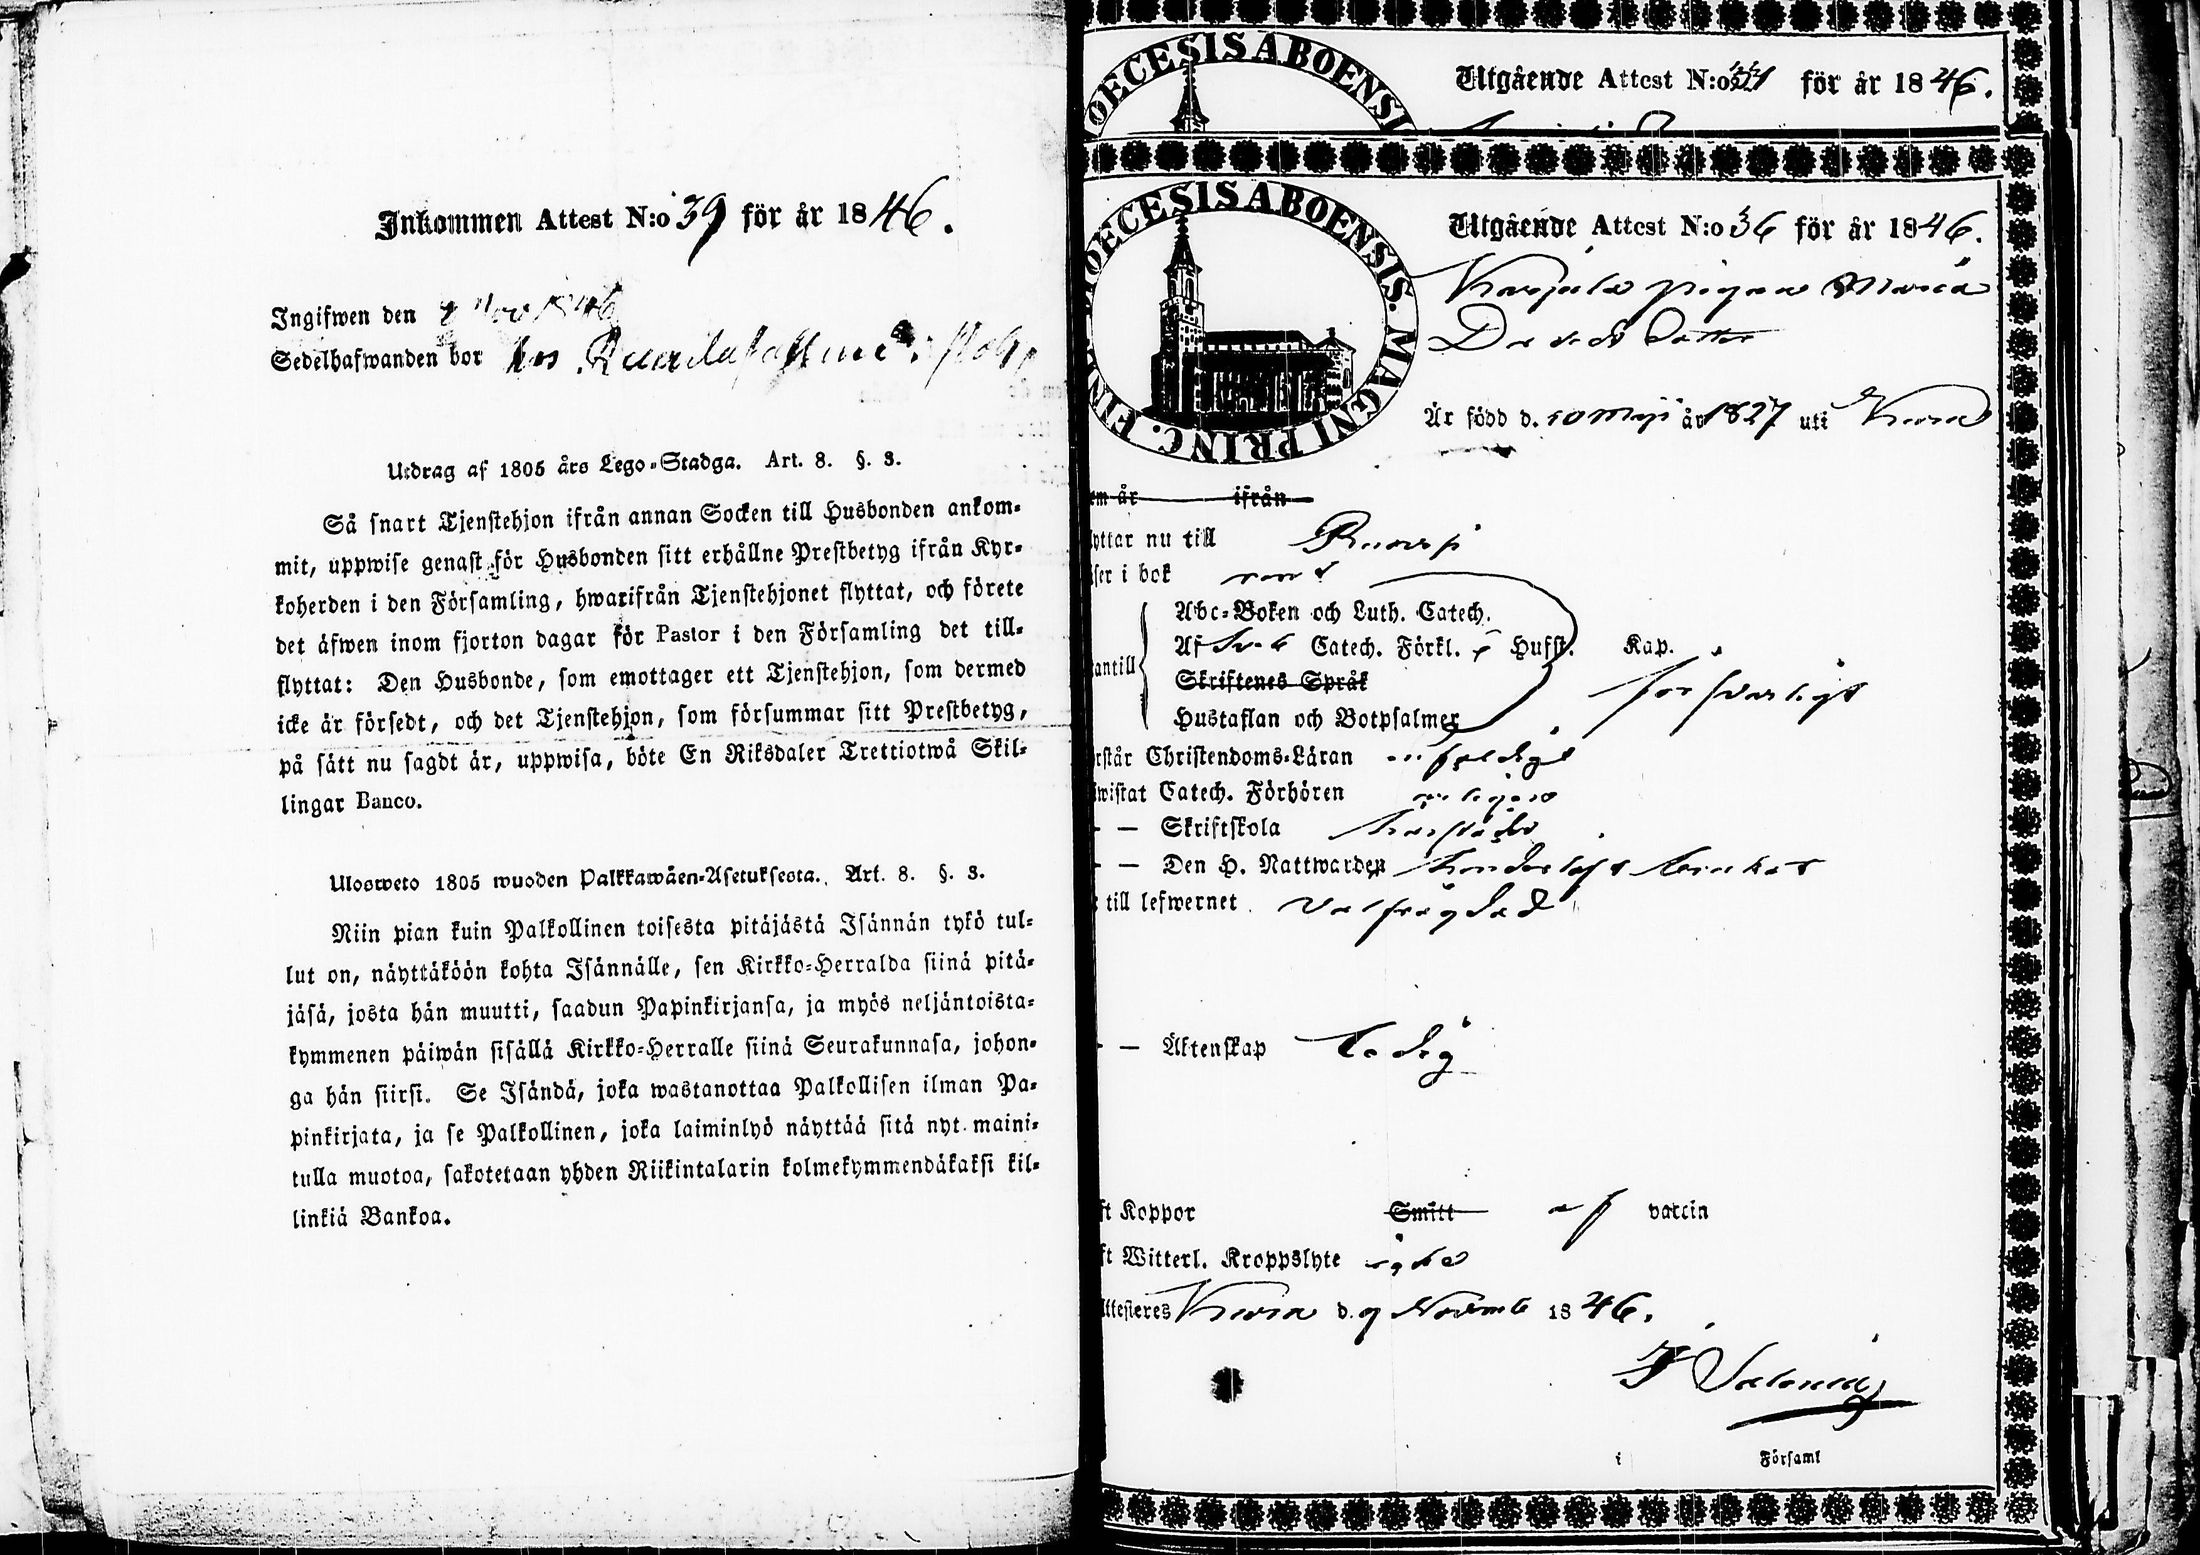 Inkommen Attest N:o 39 för år 1846.
Ingifwen den 9 Nov 1846
Sedelhafwanden bor hos
Utdrag af 1805 års Lego-Stadga. Art. 8. §. 3.
Så snart Tjenstehjon ifrån annan Socken till Husbonden ankom-
mit, uppwise genast för Husbonden sitt erhållne Prestbetyg ifrån Kyr-
koherden i den Församling, hwarifrån Tjenstehjonet flyttat, och förete
det äfwen inom fjorton dagar för Pastor i den Församling det till-
flyttat: Den Husbonde, som emottager ett Tjenstehjon, som dermed
icke är försedt, och det Tjenstehjon, som försummar sitt Prestbetyg,
på sätt nu sagdt är, uppwisa, böte En Riksdaler Trettiotwå Skil-
lingar Banco.
Ulosweto 1805 wuoden Palkkawäen-Asetuksesta. Art. 8. §. 3.
Niin pian kuin Palkollinen toisesta pitäjästä Isännän tykö tul-
lut on, näyttäköön kohta Isännälle, sen Kirkko-Herralda siinä pitä-
jäsä, josta hän muutti, saadun Papinkirjansa, ja myös neljäntoista-
kymmenen päiwän sisällä Kirkko-Herralle siinä Seurakunnasa, johon-
ga hän siirsi. Se Isändä, joka wastanottaa Palkollisen ilman Pa-
pinkirjata, ja se Palkollinen, joka laiminlyö näyttää sitä nyt maini-
tulla muotoa, sakotetaan yhden Riikintalarin kolmekymmendäkaksi kil-
linkiä Bankoa.
OECESIS ABOENSI
Utgående Attest N:o för år 1846.
DIOECESIS ABOENSIS. MAGNI PRINC. FIN
Utgående Attest N:o 36 för år 1846.
Karjala pigan Maria
Davids Dotter
Är född d. 10 Maji år 1827 uti Kiura
em år ifrån
yttar nu till Rusko
ser i bok
Abc-Boken och Luth. Catech.
Af Sveb Catech. Förkl. Husst. Kap.
antill
Skriftenes Språk
försvarligt
Hustaflan och Botpsalmer
rstår Christendoms-Läran enfaldigt
iwistat Catech. Förhören
— Skriftskola
— Den H. Nattwarden
till lefwernet välfrägdad
— Äktenskap ledig
ft Koppor Smitt af vaccin
ft Witterl. Kroppslyte
ttesteres d. 9 Novemb 1846.
i Församl